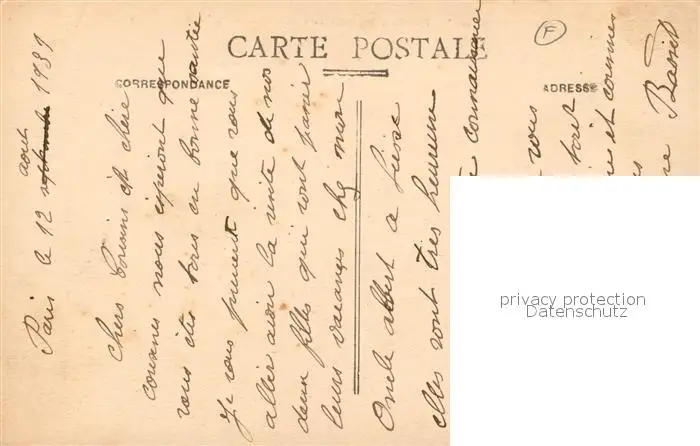 CARTE POSTALE
CORRESPONDANCE
ADRESSE
F
août
Paris le 12 septembre 1939
Chers Cousins et chère
cousines nous espéront que
vous êtes tous en bonne santée
Je vous previent que vous
allier avoir la visite de nos
deux filles qui vont passer
leurs vacances chez mon
Oncle albert a
elles sont très heureuse
connaissance
vous
tout
et cousines
privacy protection
Datenschutz